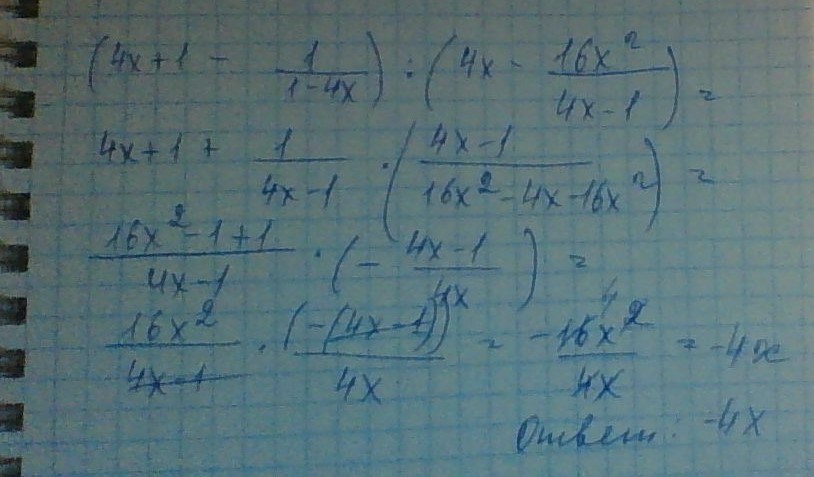 (4x+1 - 1/(1-4x)) : (4x - 16x²/(4x-1)) =
4x+1 + 1/(4x-1) · ((4x-1)/(16x²-4x-16x²)) =
(16x²-1+1)/(4x-1) · (- (4x-1)/4x) =
16x²/(4x-1) · (-(4x-1))/4x = -16x²/4x = -4x
4
Ответ: -4x